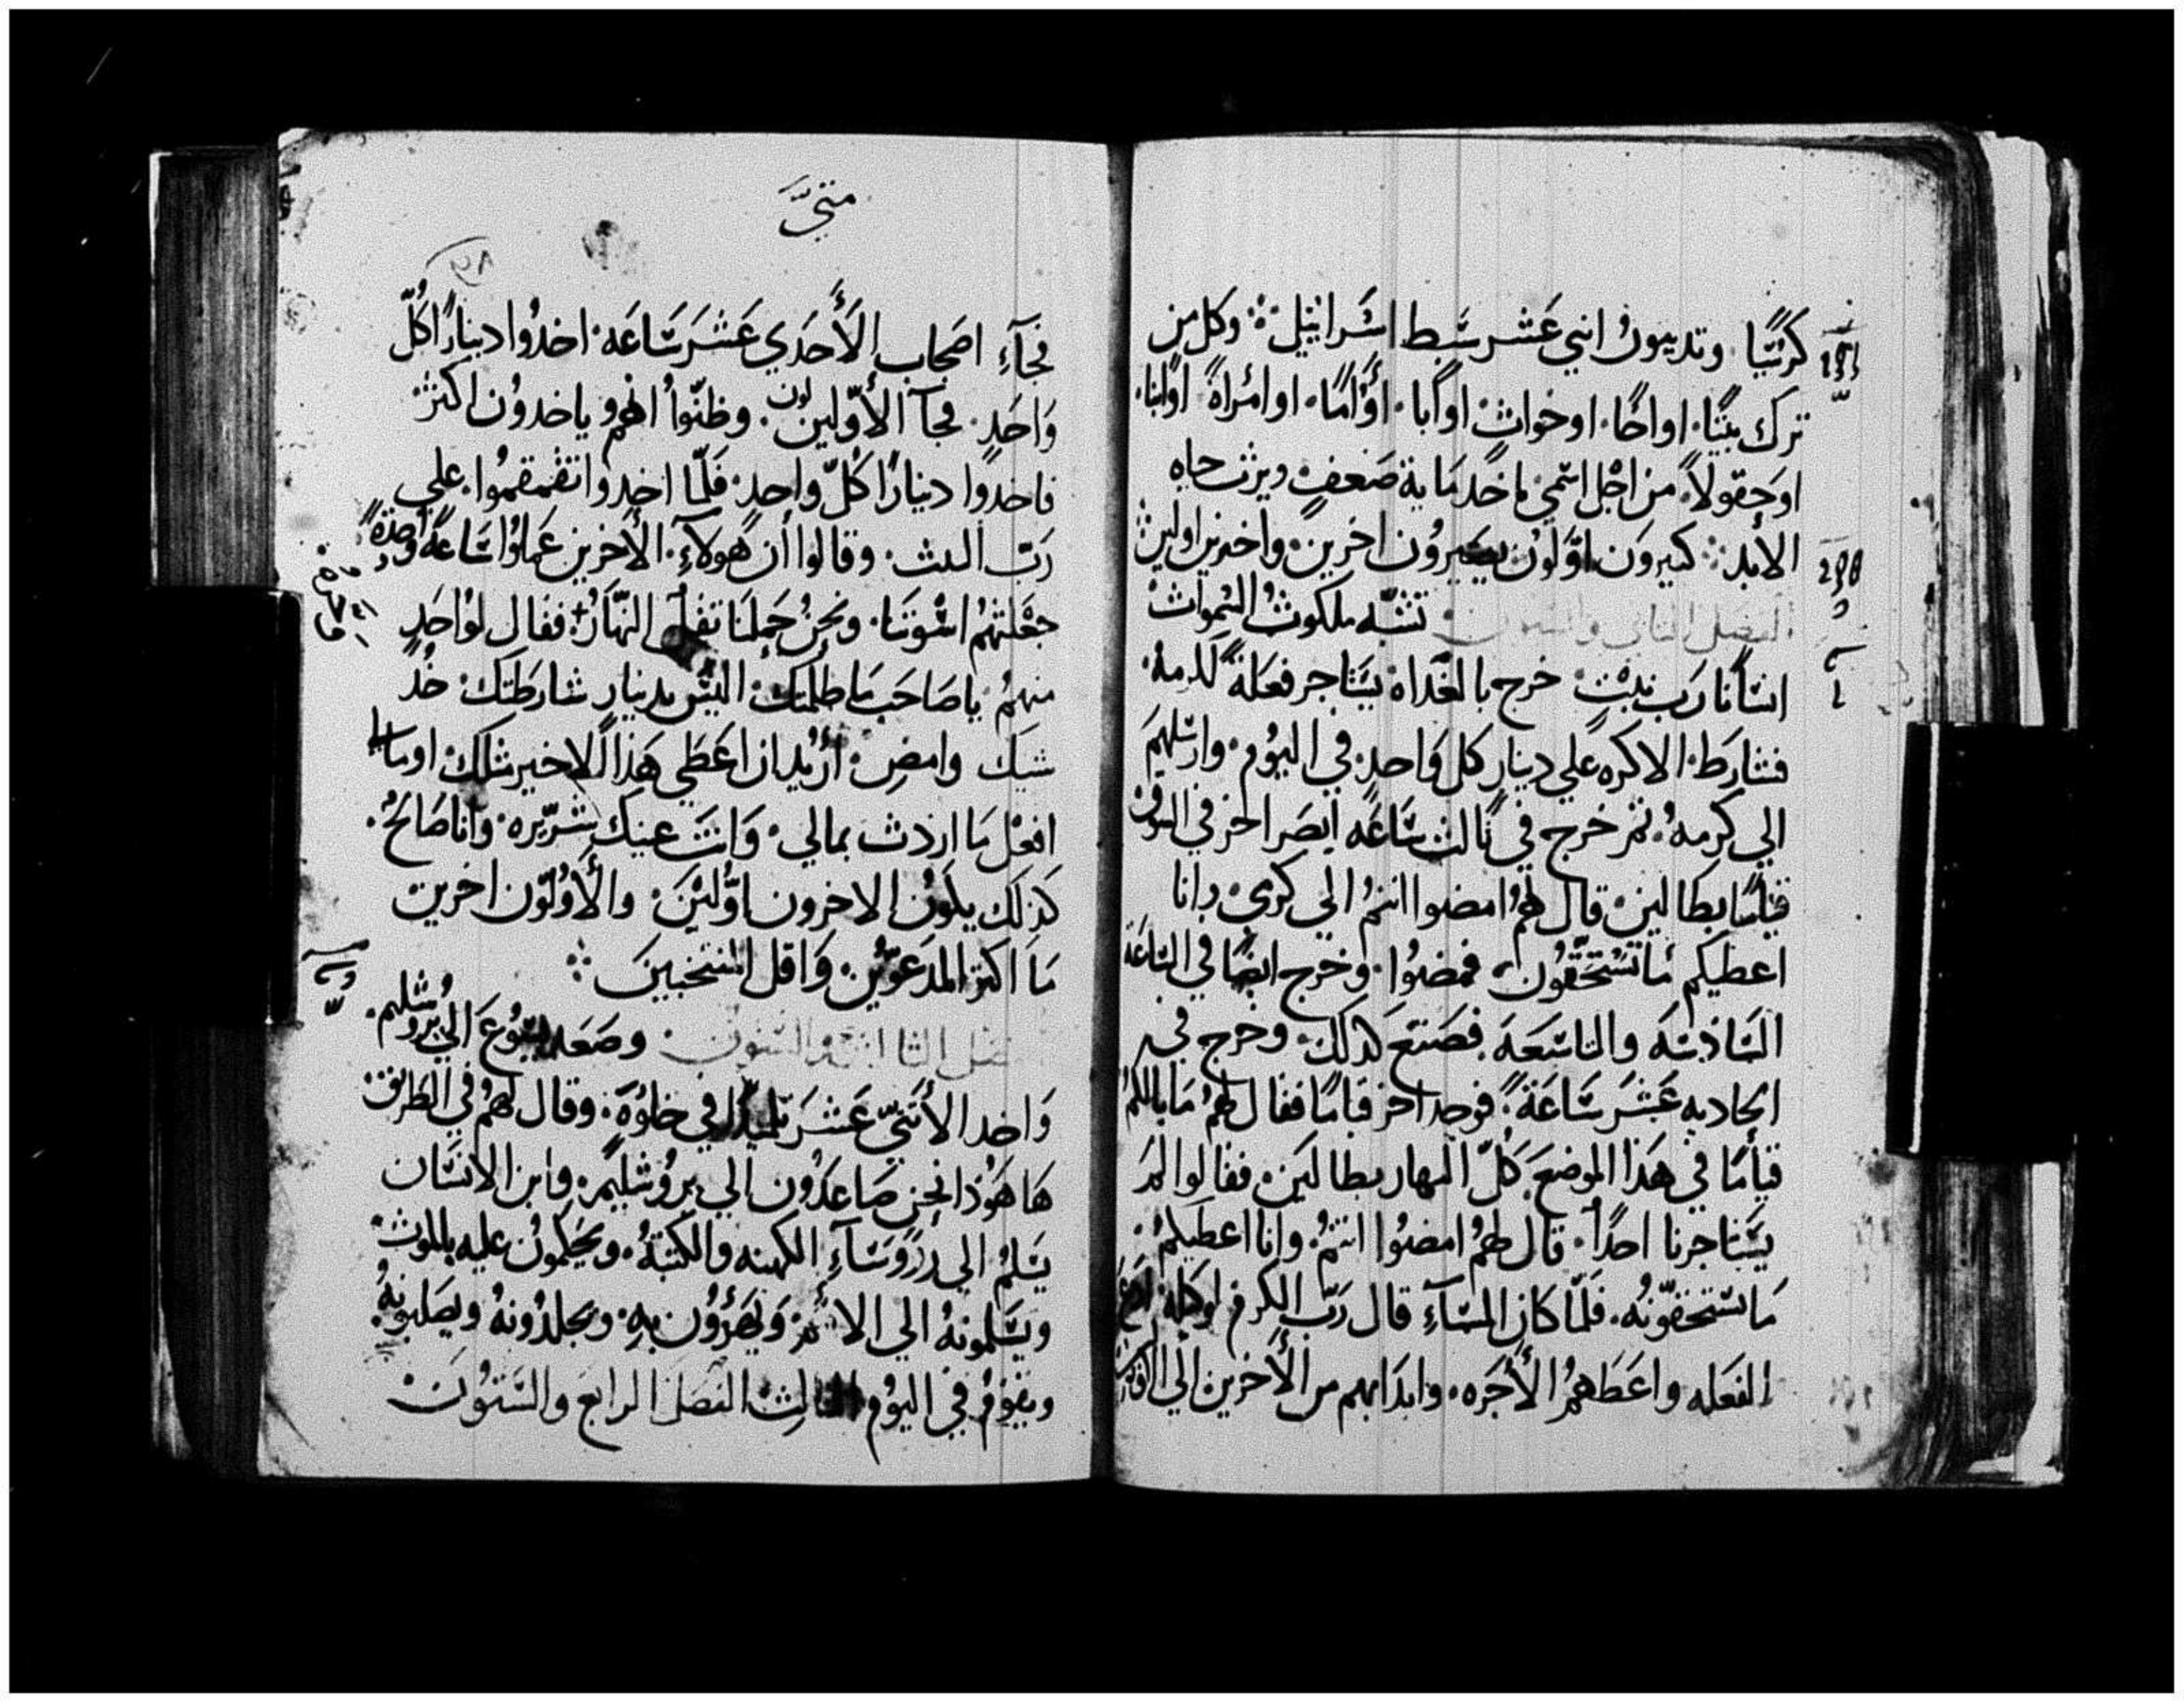 كرسيًا وتدينون اثني عشر سبط اسرائيل وكل من
ترك بيتًا او اخًا او خوات او ابا او امًا او امراة او ابنا
او حقولاً من اجل اسمي ياخد ماية ضعف ويرث حياه
الأبد كثيرون اوّلون يصيرون اخرين واخرين اولين
الفصل الثاني والستون تشبّه ملكوت السموات
انسانًا رب بيت خرج بالغداة يستاجر فعلة لكرمه
فشارط الاكره علي دينار كل واحد في اليوم وارسلهم
الي كرمه ثم خرج في ثالث ساعه ابصر اخر في السوق
قيامًا بطالين قال لهم امضوا انتم الي كرمي وانا
اعطيكم ما تستحقون فمضوا وخرج ايضًا في الساعة
السادسة والتاسعة فصنع كدلك وخرج في
الحاديه عشر ساعة فوجد اخر قيامًا فقال لهم ما بالكم
قيامًا في هدا الموضع كلّ النهار بطالين فقالوا لم
يستاجرنا احدًا قال لهم امضوا انتم وانا اعطيكم
ما تستحقونه فلمّا كان المسآء قال ربّ الكرم لوكله ادع
الفعله واعطهم الأجره وابدا بهم من الأخرين الي
متيّ
٧٨
فجآء اصحاب الأحدي عشر ساعه اخدوا دينارًا كلّ
واحد فجآ الأوّلين لون وظنّوا انهم ياخدون اكثر
فاخدوا دينارًا كلّ واحد فلمّا اخدوا تقمقموا علي
ربّ البيت وقالوا أن هولآء الأخرين عملوا ساعة واحدة
جعلتهم اسوتنا ونحن حملنا ثقل النهار فقال لواحد
منهم يا صاحب ما ظلمتك اليس بدينار شارطتك خد
شيك وامض أريد ان اعطي هذا الاخير مثلك او ما لي
افعل ما اردت بمالي وانت عينك شرّيره وانا صالح
كذلك يكون الاخرون اوّلين والأوّلون اخرين
ما اكثر المدعوّين واقل المنتخبين
الفصل الثالث والستون وصعد يسوع الي يروشليم
واخد الأثني عشر تلميدًا في خلوة وقال لهم في الطريق
ها هوذا نحن صاعدون الي يروشليم وابن الانسان
يسلم الي رؤسآء الكهنه والكتبة ويحكمون عليه بالموت
ويسلمونه الي الأمم ويهزؤون به ويجلدونه ويصلبونه
ويقوم في اليوم الثالث الفصل الرابع والستون